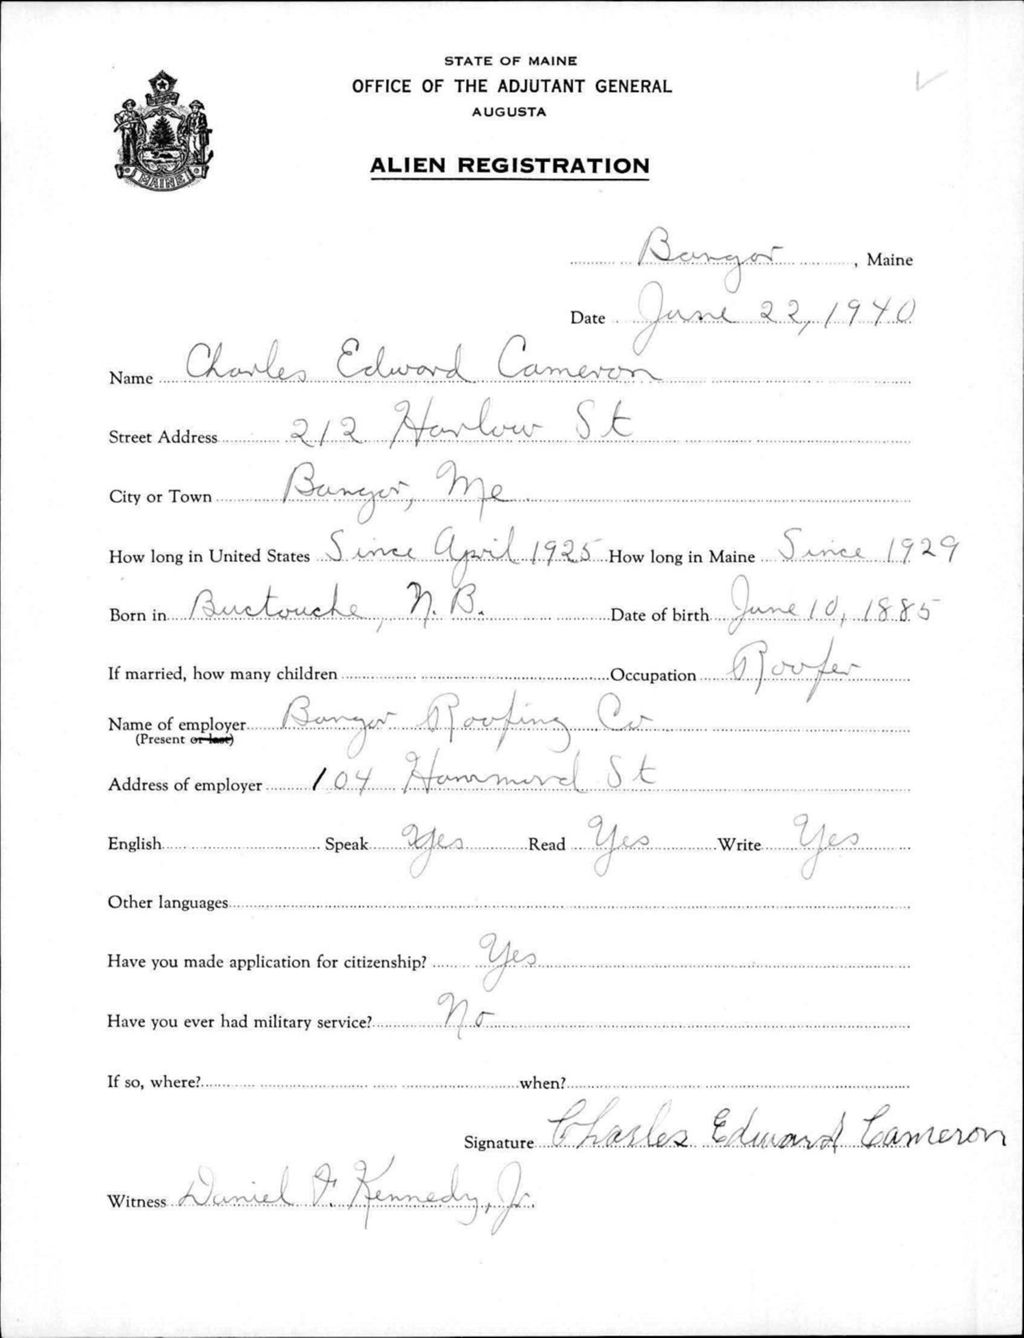 STATE OF MAINE
OFFICE OF THE ADJUTANT GENERAL
AUGUSTA
ALIEN REGISTRATION
MAINE
Bangor, Maine
Date June 22, 1940
Name Charles Edward Cameron
Street Address 212 Harlow St
City or Town Bangor, Me
How long in United States Since April 1925 How long in Maine Since 1929
Born in Buctouche, N.B. Date of birth June 10, 1885
If married, how many children Occupation Roofer
Name of employer Bangor Roofing Co
(Present or last)
Address of employer 104 Hammond St
English Speak Yes Read Yes Write Yes
Other languages
Have you made application for citizenship? Yes
Have you ever had military service? No
If so, where? when?
Signature Charles Edward Cameron
Witness Daniel F. Kennedy, Jr.